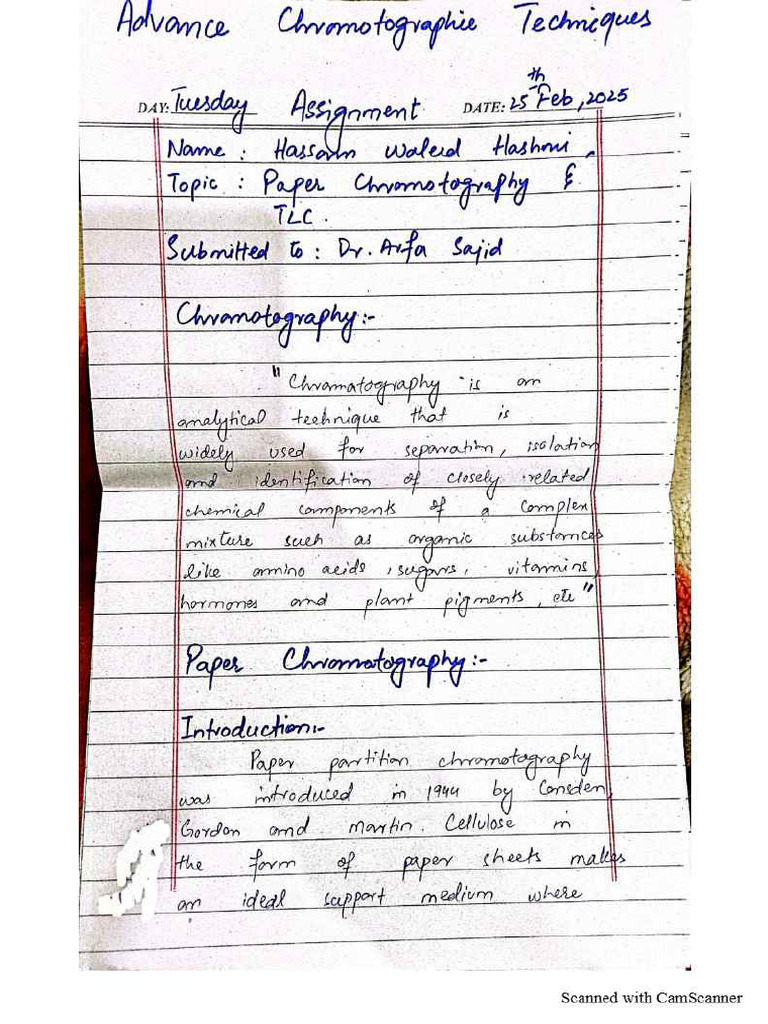 Advance Chromotographic Techniques
DAY: Tuesday Assignment DATE: 25th Feb, 2025
Name : Hassam Waleed Hashmi
Topic : Paper Chromotography &
TLC.
Submitted to : Dr. Arfa Sajid
Chromotography:-
"Chromatography is an
analytical technique that is
widely used for separation, isolation
and identification of closely related
chemical components of a complex
mixture such as organic substances
like amino acids, sugars, vitamins,
hormones and plant pigments, etc"
Paper Chromatography:-
Introduction:-
Paper partition chromotography
was introduced in 1944 by Consden,
Gordon and martin. Cellulose in
the form of paper sheets makes
an ideal support medium where
Scanned with CamScanner